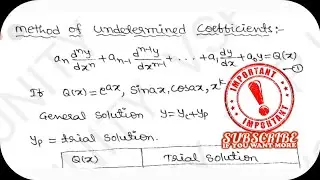 Method of Undetermined Coefficients:-
aₙ dⁿy/dxⁿ + aₙ₋₁ dⁿ⁺¹y/dxⁿ⁻¹ + . . . + a₁ dy/dx + a₀y = Q(x) —①
If Q(x) = eᵃˣ, sinax, cosax, xᵏ
General solution y = y_c + y_p
y_p = trial solution.
Q(x) | Trial solution
IMPORTANT
IMPORTANT
IMPORTANT
SUBSCRIBE
IF YOU WANT MORE